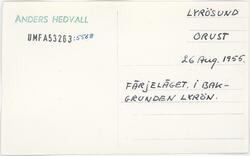 ANDERS HEDVALL
UMFA53263:5568
LYRÖSUND
ORUST
26 Aug. 1955.
FÄRJELÄGET. I BAK-
GRUNDEN LYRÖN.